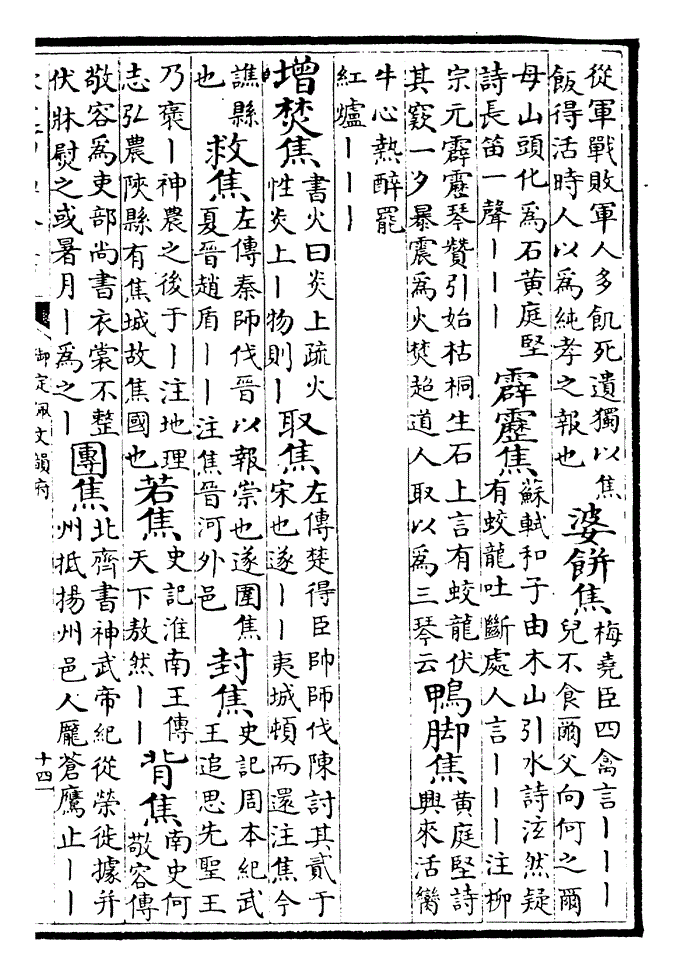 從軍戰敗軍人多飢死遺獨以焦
飯得活時人以為純孝之報也
婆餅焦
梅堯臣四禽言丨丨丨
兒不食爾父向何之爾
母山頭化為石黃庭堅
詩長笛一聲丨丨丨
霹靂焦
蘇軾和子由木山引水詩泫然疑
有蛟龍吐斷處人言丨丨丨注柳
宗元霹靂琴贊引始枯桐生石上言有蛟龍伏
其竅一夕暴震為火焚超道人取以為三琴云
鴨脚焦
黃庭堅詩
興來活臠
牛心熱醉罷
紅爐丨丨丨
增焚焦
書火曰炎上疏火
性炎上丨物則丨
取焦
左傳楚得臣帥師伐陳討其貳于
宋也遂丨丨夷城頓而還注焦今
譙縣
也
救焦
左傳秦師伐晉以報崇也遂圍焦
夏晉趙盾丨丨注焦晉河外邑
封焦
史記周本紀武
王追思先聖王
乃褒丨神農之後于丨注地理
志弘農陝縣有焦城故焦國也
若焦
史記淮南王傳
天下敖然丨丨
背焦
南史何
敬容傳
敬容為吏部尚書衣裳不整
伏牀熨之或暑月丨為之丨
團焦
北齊書神武帝紀從榮徙據并
州抵揚州邑人龐蒼鷹止丨丨
御定佩文韻府
十四